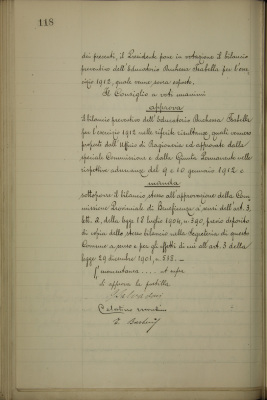 118
dei presenti, il Presidente pone in votazione il bilancio
preventivo dell'Educatorio Anchera Isabella per l'eser
cizio 1912, quale venne sovra esposto.
Il Consiglio a voti unanimi
approva
il bilancio preventivo dell'Educatorio Anchera Isabella
per l'esercizio 1912 nelle riferite risultanze, quali vennero
proposti dall'Ufficio di Ragioneria ed approvate dalla
speciale Commissione e dalla Giunta Comunale nelle
rispettive adunanze del 9 e 10 gennaio 1912 e
manda
sottoporre il bilancio stesso all'approvazione della Com
missione Provinciale di Beneficenza a' sensi dell'art. 3,
lett. a, della legge 17 luglio 1904, n. 390, previo deposito
di copia dello stesso bilancio nella Segreteria di questo
Comune a senso e per gli effetti di cui all'art. 3 della
legge 29 dicembre 1901, n. 533. —
Si approva la postilla